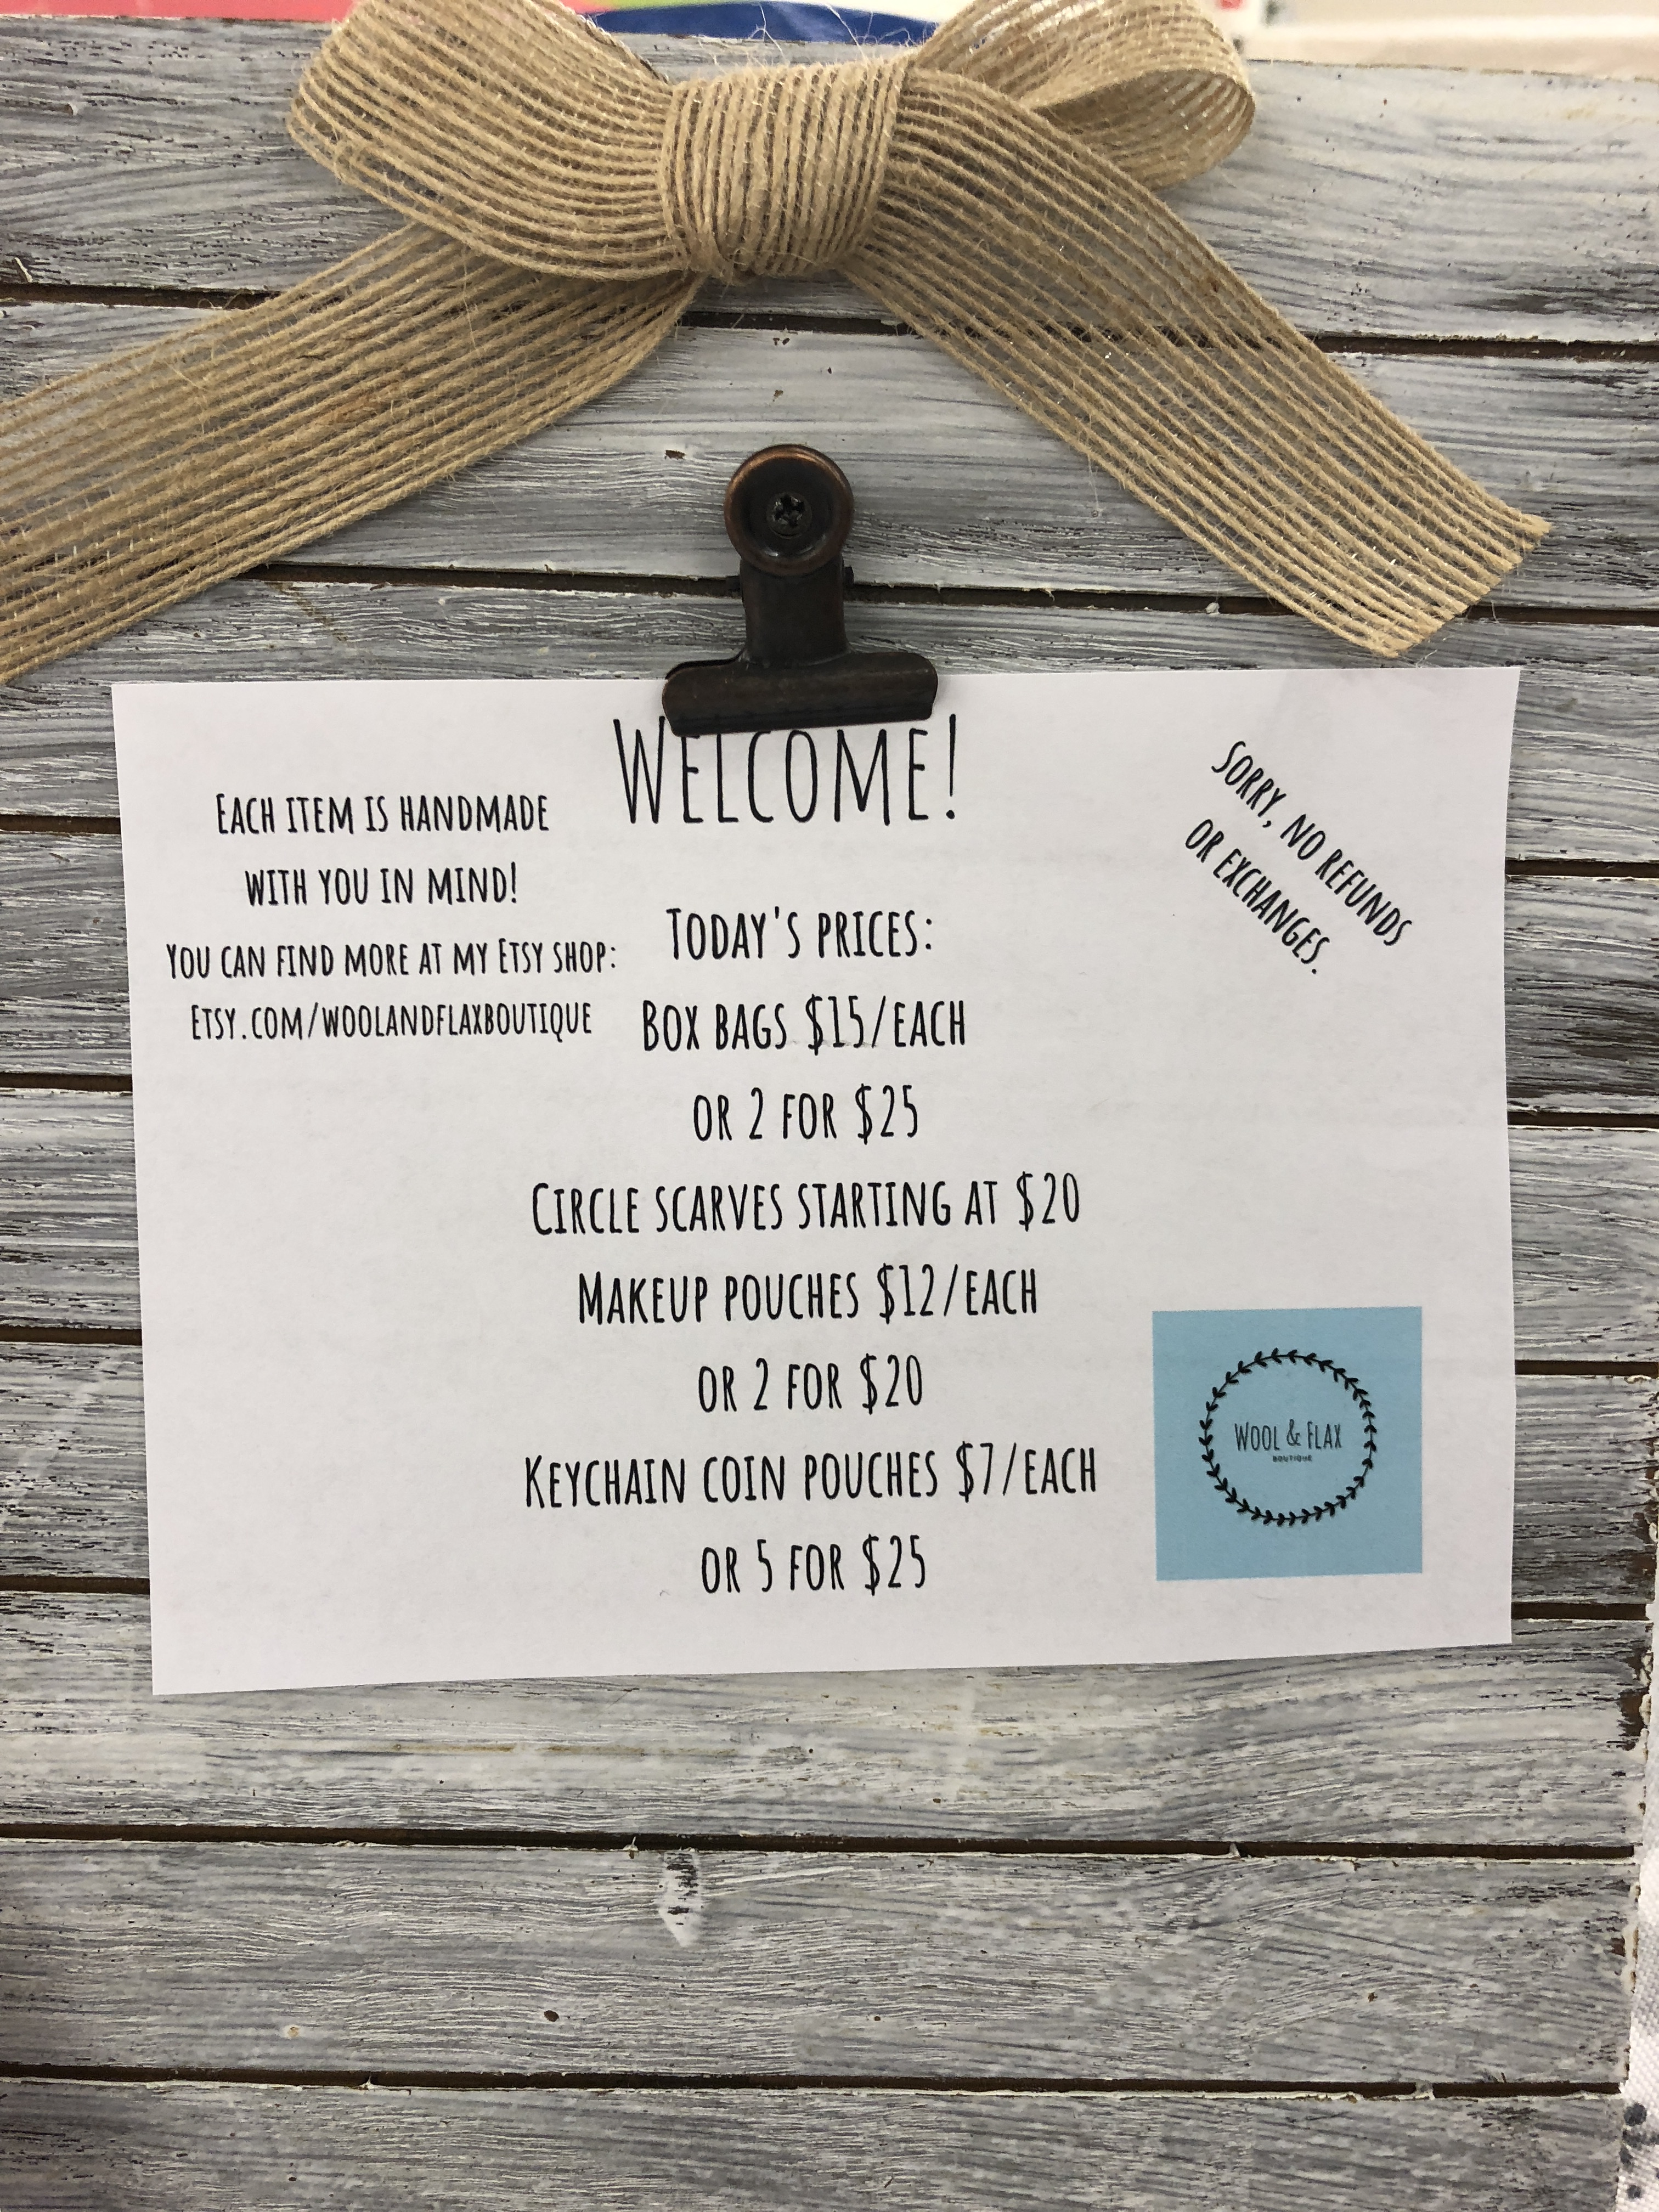 Welcome!
Each item is handmade
with you in mind!
You can find more at my Etsy shop:
Etsy.com/woolandflaxboutique
Sorry, no refunds
or exchanges.
Today's prices:
Box bags $15/each
or 2 for $25
Circle scarves starting at $20
Makeup pouches $12/each
or 2 for $20
Keychain coin pouches $7/each
or 5 for $25
Wool & Flax
BOUTIQUE